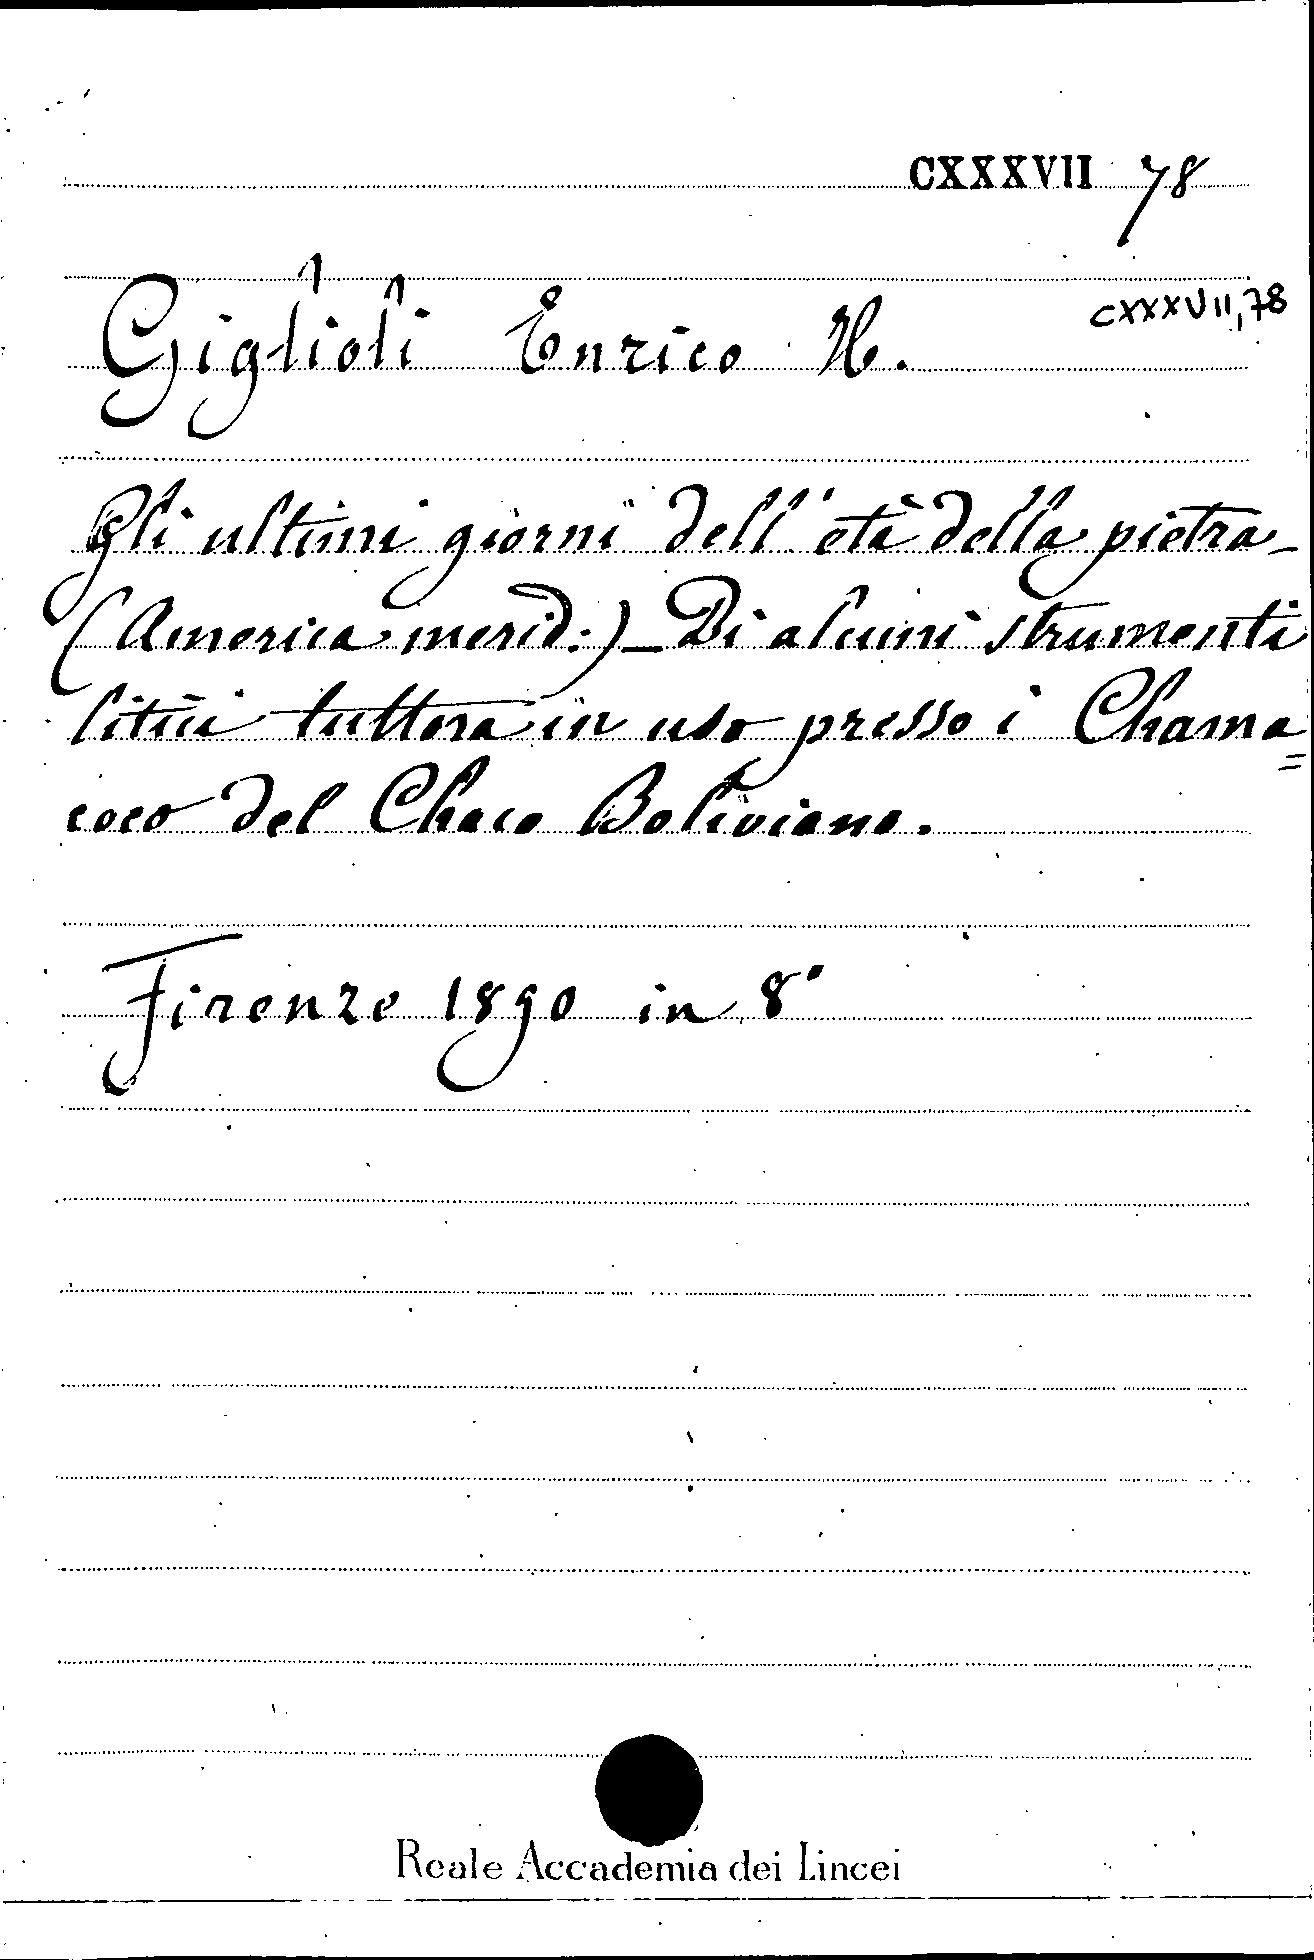 CXXXVII 78
CXXXVII,78
Giglioli Enrico H.
Gli ultimi giorni dell'età della pietra_
(America merid:)_Di alcuni strumenti
litici tuttora in uso presso i Chama=
coco del Chaco Boliviano.
Firenze 1890 in 8°
Reale Accademia dei Lincei